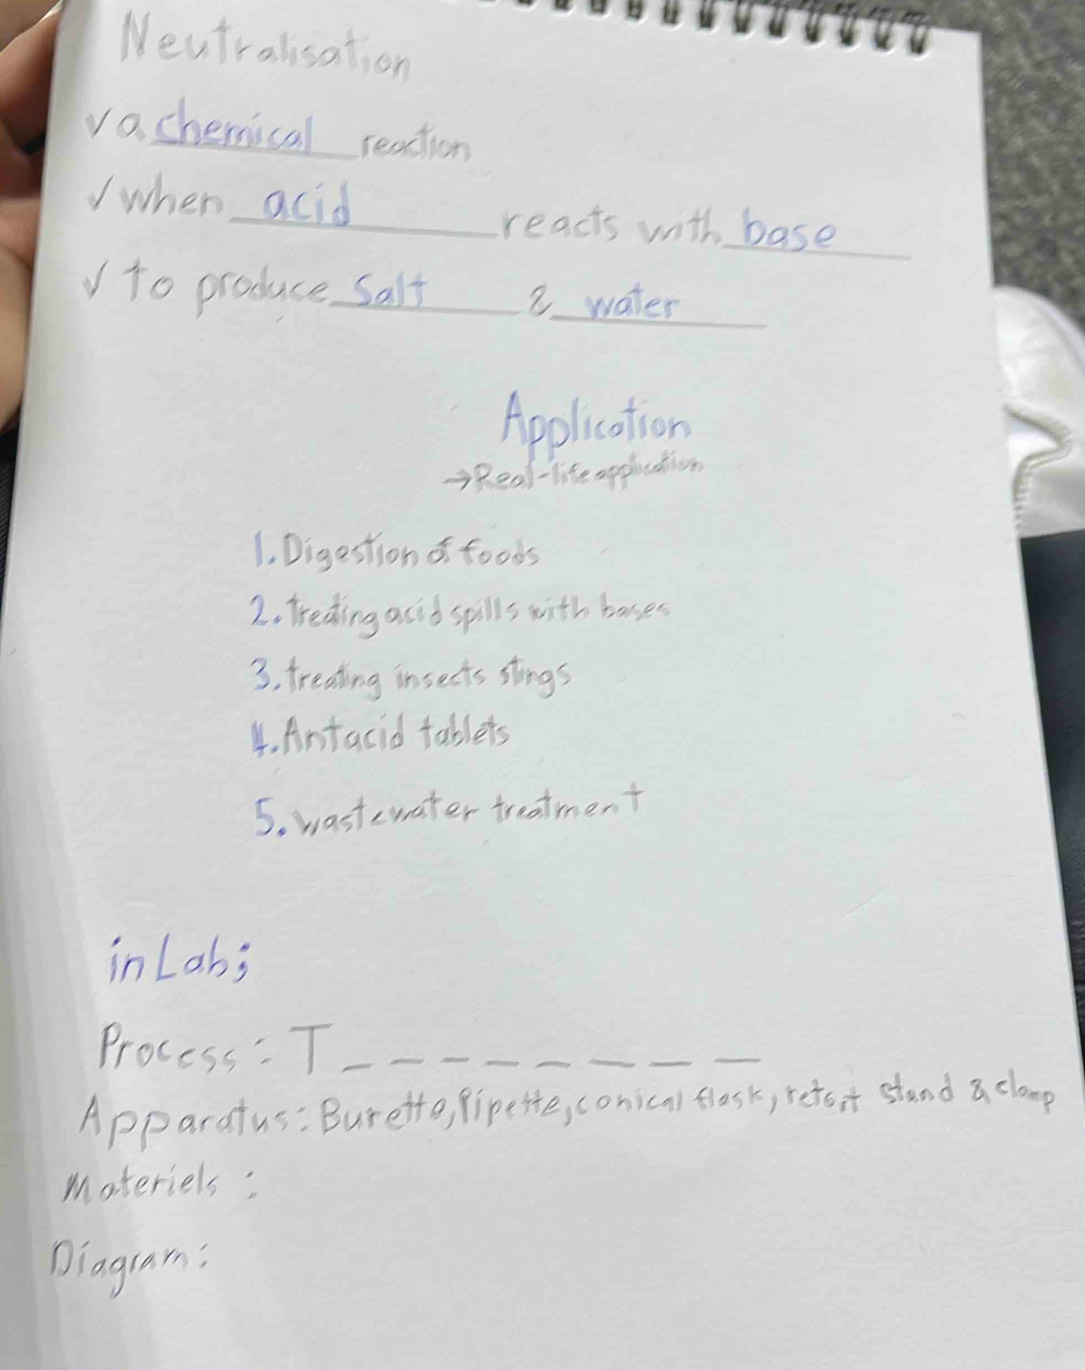 Neutralisation
√a chemical reaction
√when acid reacts with base
√to produce salt & water
Application
→Real-life application
1. Digestion of foods
2. Treating acid spills with bases
3. treating insects stings
4. Antacid tablets
5. wastewater treatment
in Lab;
Process: T _ _ _ _ _ _ _ _ _
Apparatus: Burette, Pipette, conical flask, retort stand & clamp
Materiels :
Diagram: